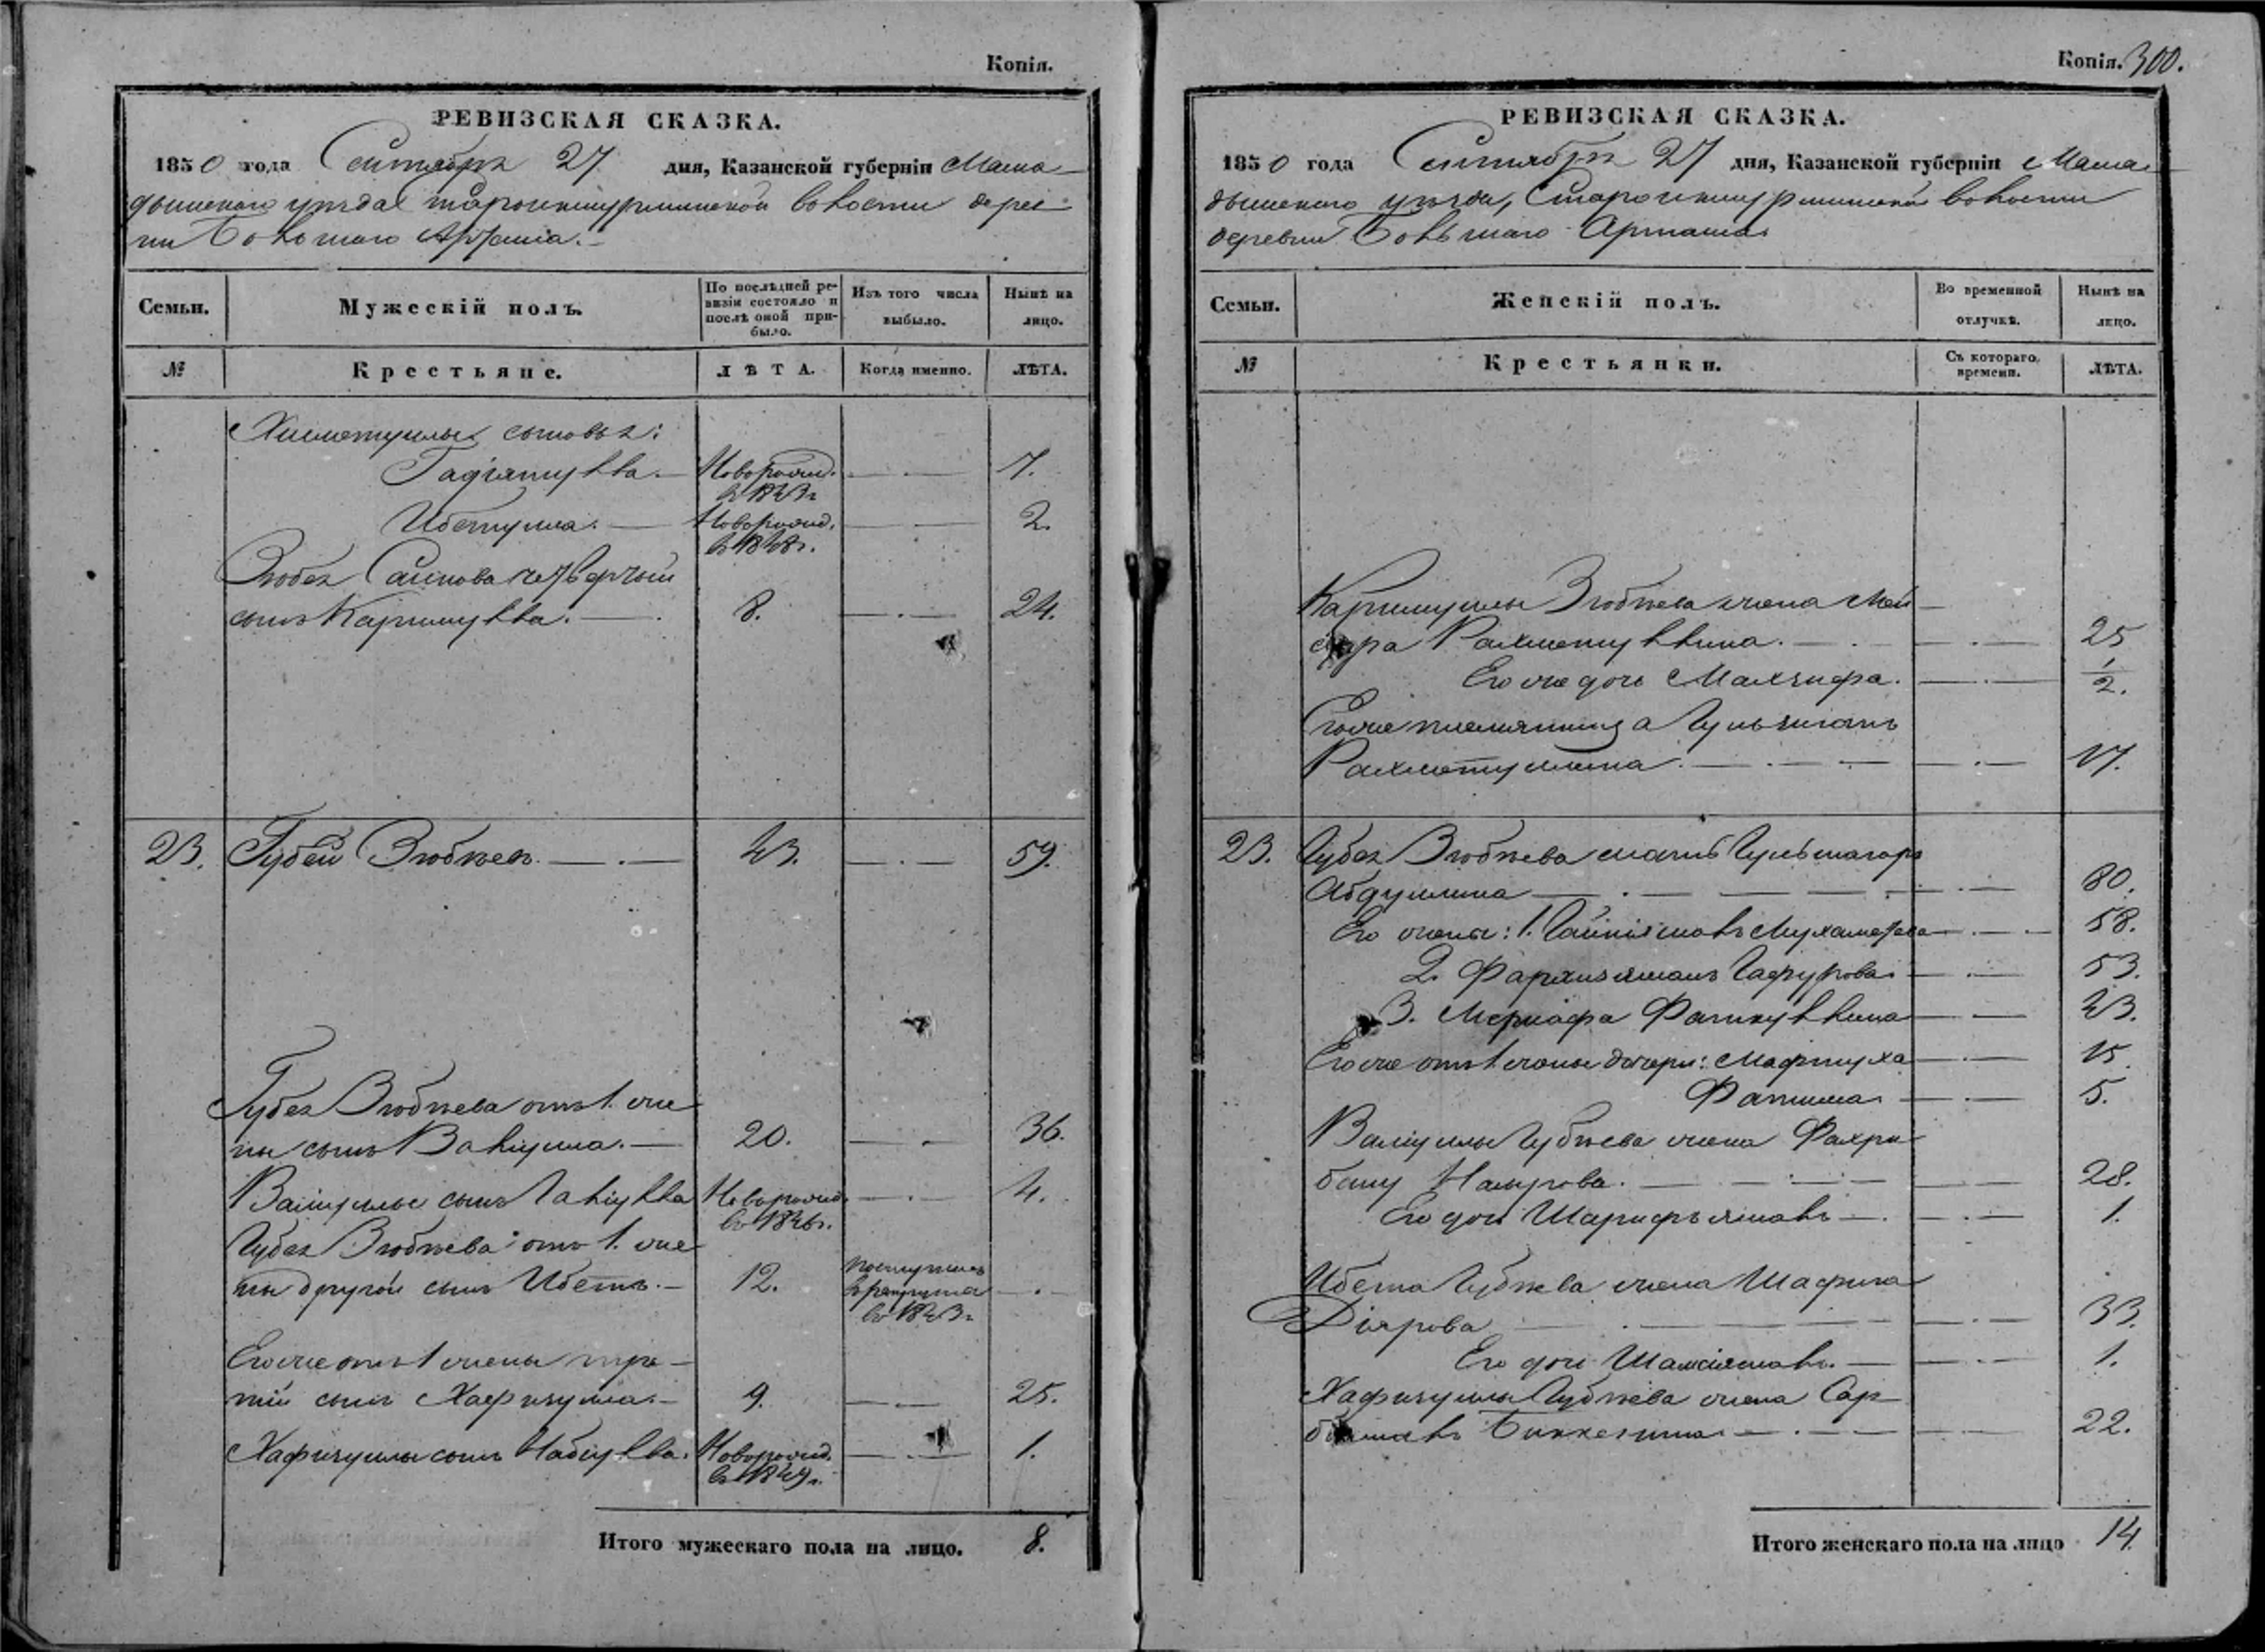 Копія.
РЕВИЗСКАЯ СКАЗКА.
1850 года Сентября 27 дня, Казанской губерніи Мама-
дышскаго уѣзда волости дерев-
ни Большаго Арташа.
Семьи.
Мужескій полъ.
По послѣдней ре-
визіи состояло и
послѣ оной при-
было.
Изъ того числа
выбыло.
Нынѣ на
лицо.
№
Крестьяне.
ЛѢТА.
Когда именно.
ЛѢТА.
Хисметуллы сыновья:
Гадіятулла. Новорожд. 7.
въ 1843г.
Ибетулла. Новорожд. 2.
въ 1848г.
Зюбея Саинова четвертый
сынъ Каримулла. 8. 24.
23. Губей Зюбѣевъ. 43. 59.
Губея Зюбѣева отъ 1. же-
ны сынъ Валіулла. 20. 36.
Валіуллы сынъ Галіулла Новорожд. 4.
въ 1846г.
Губея Зюбѣева отъ 1. же-
ны другой сынъ Ибетъ. 12. поступилъ
въ рекруты
въ 1843г.
Его же отъ 1 жены тре-
тій сынъ Хафизулла. 9. 25.
Хафизуллы сынъ Набіулла. Новорожд. 1.
въ 1849г.
Итого мужескаго пола на лицо. 8.
Копія. 300.
РЕВИЗСКАЯ СКАЗКА.
1850 года Сентября 27 дня, Казанской губерніи Мама-
дышскаго уѣзда, волости
деревни Большаго Арташа
Семьи.
Женскій полъ.
Во временной
отлучкѣ.
Нынѣ на
лицо.
№
Крестьянки.
Съ котораго,
времени.
ЛѢТА.
Каримуллы Зюбѣева жена
Рахметуллина. 25
Его же дочь 1/2.
Его же племянница
Рахметуллина. 17.
23. Губея Зюбѣева мать
Абдуллина 80.
Его жены: 1. Мухаметева 58.
2. Гафурова. 53.
3. 43.
Его же отъ 1 жены дочери: Мафтуха 15.
Фатима 5.
Валіуллы Губѣева жена Фахри-
бану Назырова. 28.
Его дочь 1.
Ибета Губѣева жена Шафига
Діярова 33.
Его дочь 1.
Хафизуллы Губѣева жена Сар-
22.
Итого женскаго пола на лицо 14.